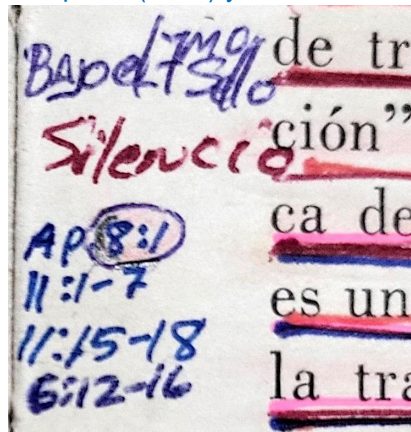 Bajo el 7mo. Sello
Silencio
AP. 8:1
11:1-7
11:15-18
6:12-16
de tr
ción”
ca de
es un
la tra